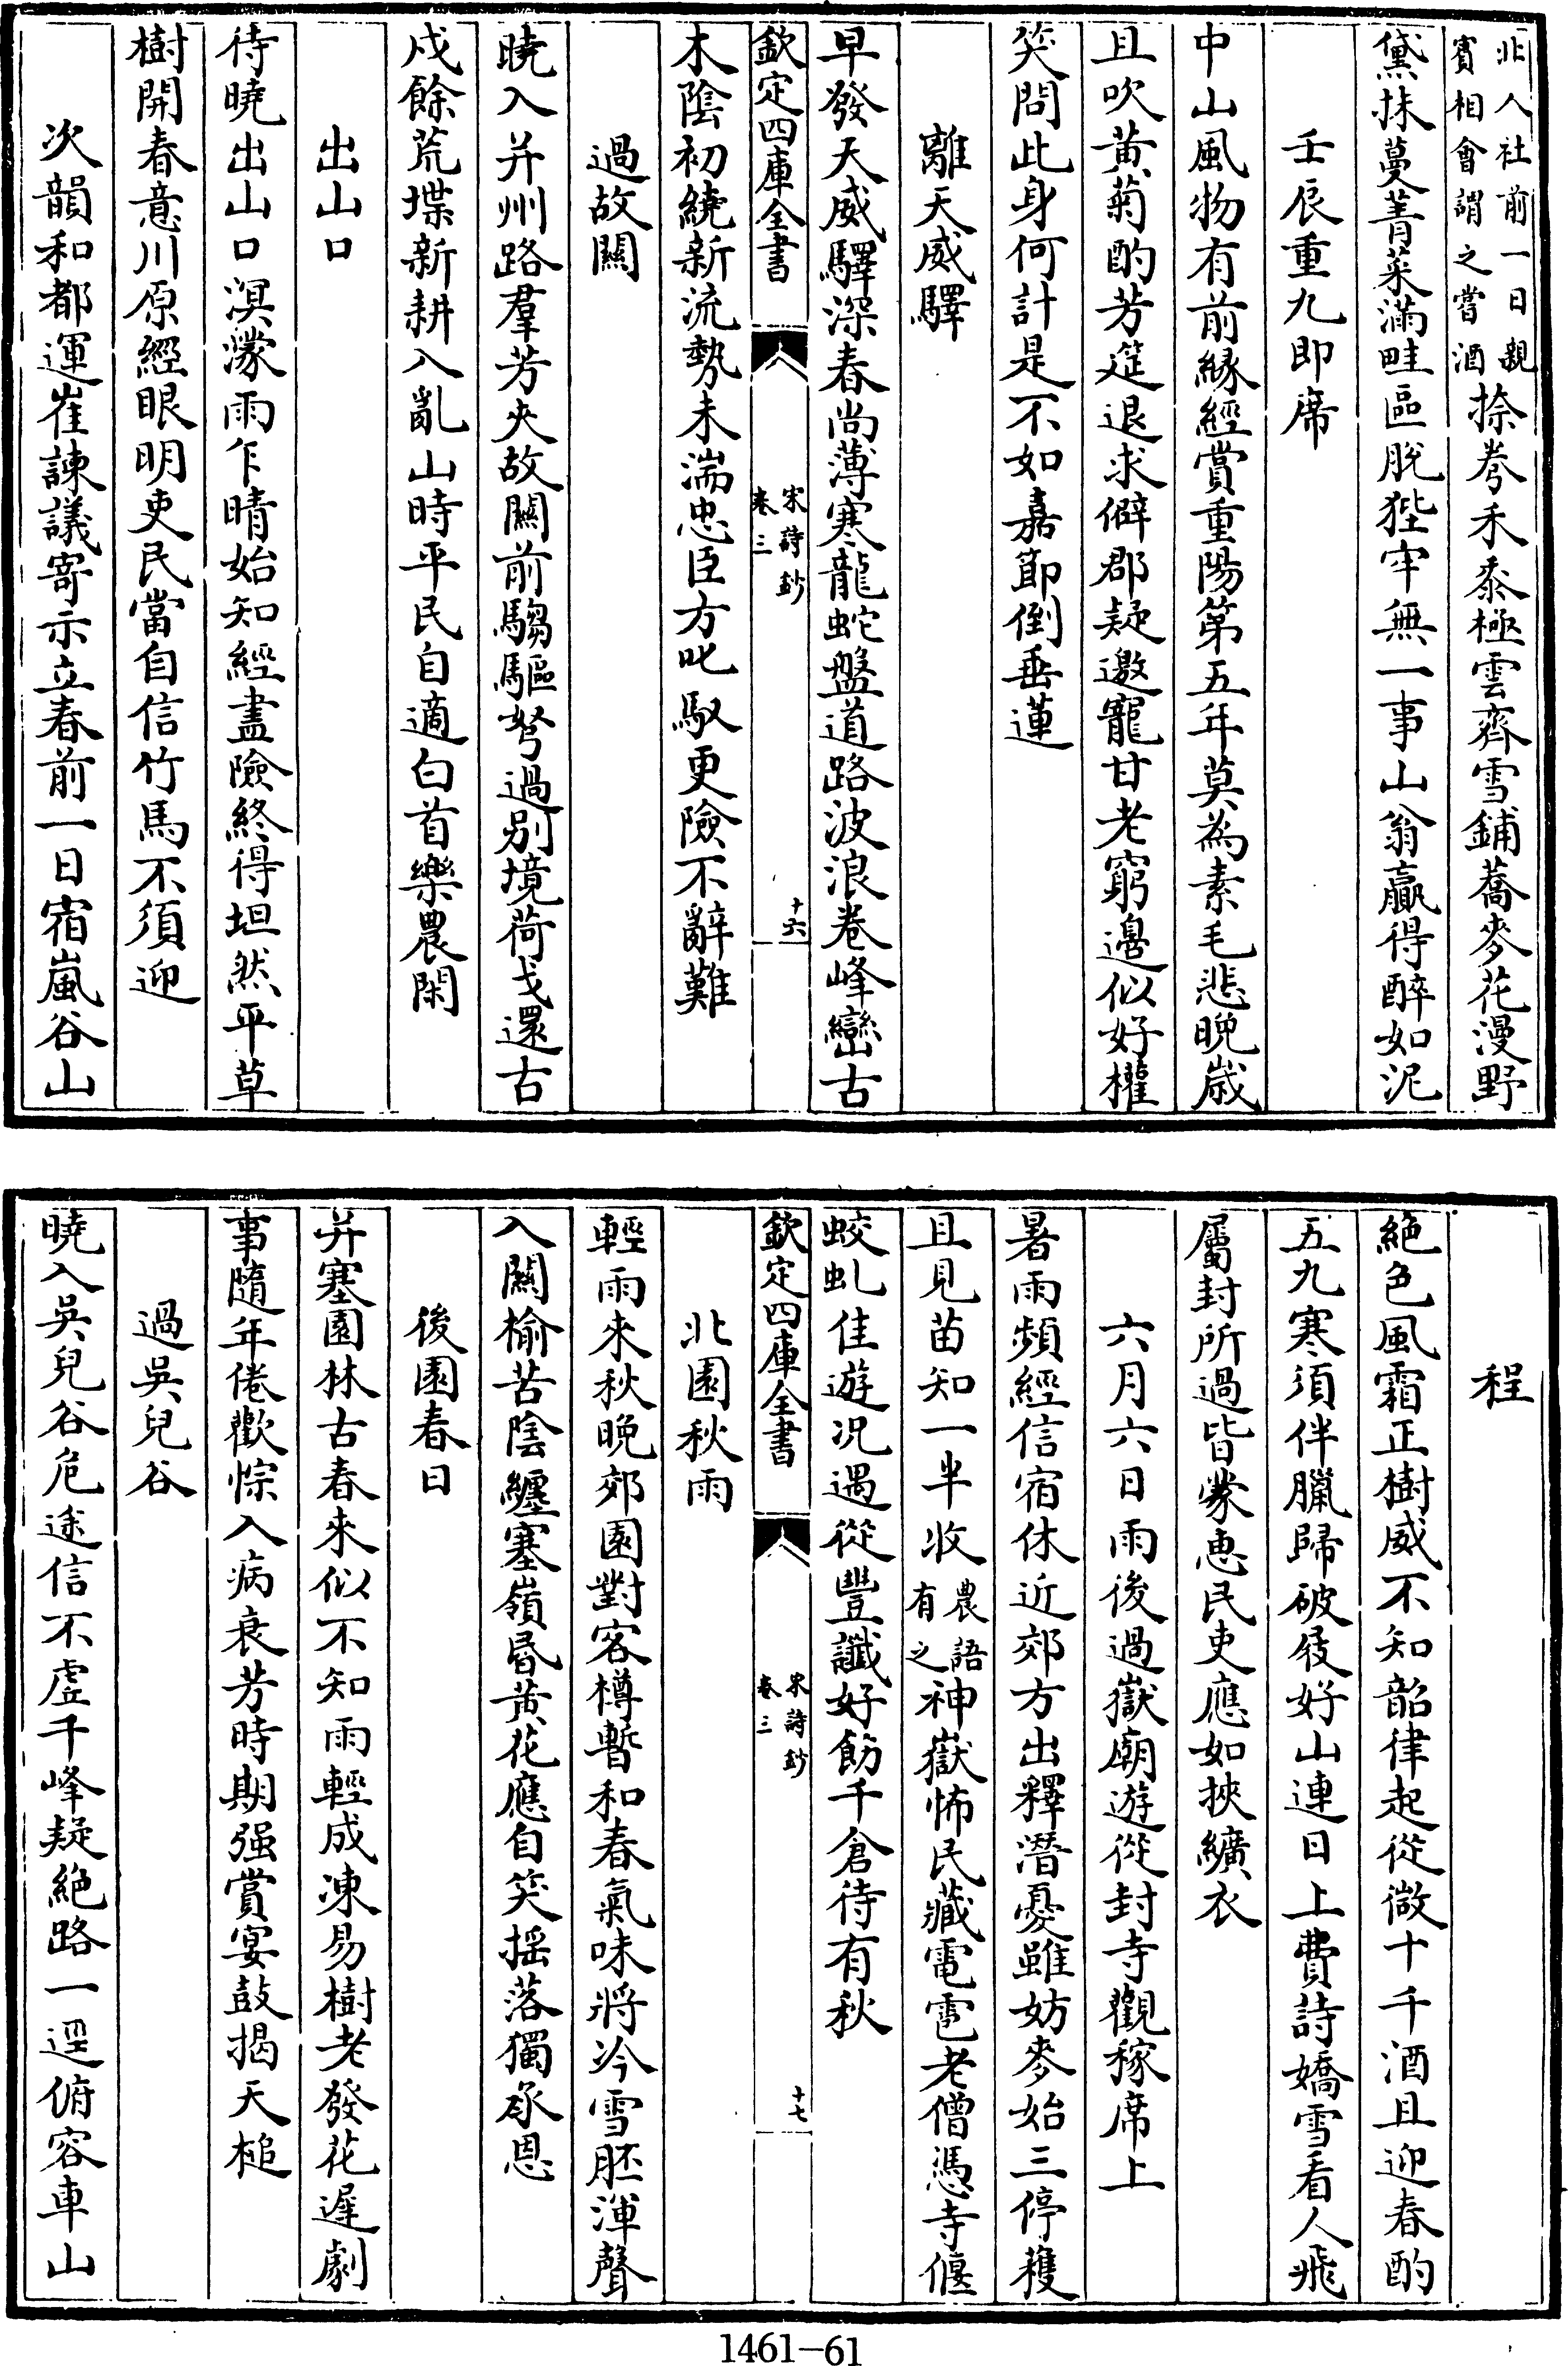 北人社前一日親賓相會謂之嘗酒捺鬈禾黍極雲齊雪鋪蕎麥花漫野
黛抹蔓菁菜滿畦區脫狴牢無一事山翁贏得醉如泥
壬辰重九即席
中山風物有前緣經賞重陽第五年莫為素毛悲晚歲
且吹黃菊酌芳筵退求僻郡疑邀寵甘老窮邊似好權
笑問此身何計是不如嘉節倒垂蓮
離天威驛
早發天威驛深春尚薄寒龍蛇盤道路波浪卷峰巒古
欽定四庫全書
宋詩鈔
卷三
十六
木陰初繞新流勢未湍忠臣方叱馭更險不辭難
過故關
曉入并州路羣芳夾故關前騶驅弩過別境荷戈還古
戍餘荒堞新耕入亂山時平民自適白首樂農閑
出山口
待曉出山口溟濛雨乍晴始知經盡險終得坦然平草
樹開春意川原經眼明吏民當自信竹馬不須迎
次韻和都運崔諫議寄示立春前一日宿嵐谷山
程
絕色風霜正樹威不知韶律起從微十千酒且迎春酌
五九寒須伴臘歸破屐好山連日上費詩嬌雪看人飛
屬封所過皆蒙惠民吏應如挾纊衣
六月六日雨後過嶽廟遊從封寺觀稼席上
暑雨頻經信宿休近郊方出釋潛憂雖妨麥始三停穫
且見苗知一半收農語有之神嶽怖民藏電雹老僧憑寺偃
蛟虬佳遊況遇從豐讖好飭千倉待有秋
欽定四庫全書
宋詩鈔
卷三
十七
北園秋雨
輕雨來秋晚郊園對客樽暫和春氣味將泠雪胚渾聲
入關榆苦陰纏塞嶺昏黃花應自笑搖落獨承恩
後園春日
并塞園林古春來似不知雨輕成凍易樹老發花遲劇
事隨年倦歡悰入病衰芳時期强賞宴鼓揭天槌
過吳兒谷
曉入吳兒谷危途信不虛千峰疑絕路一逕俯容車山
1461—61